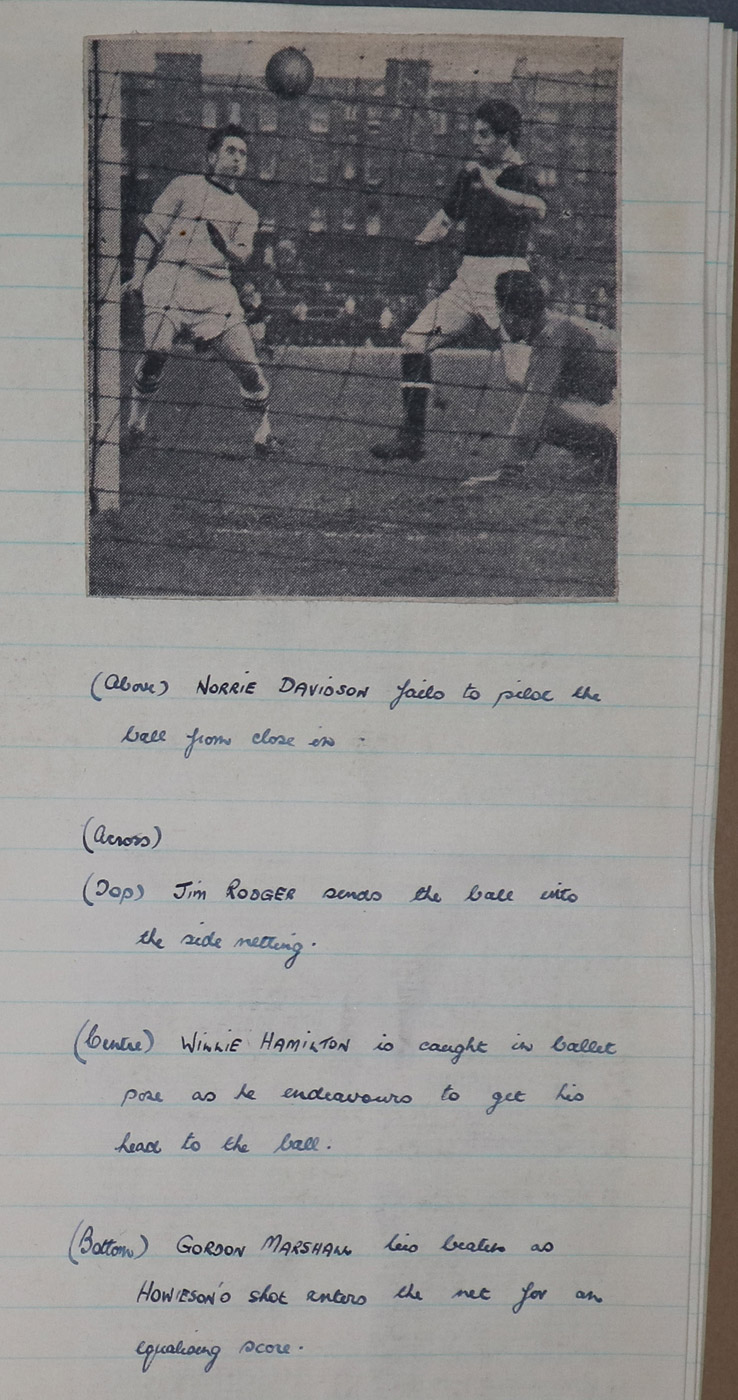 (Above) NORRIE DAVIDSON fails to pilot the
ball from close in -
(Across)
(Top) Jim RODGER sends the ball into
the side netting.
(Centre) WILLIE HAMILTON is caught in ballet
pose as he endeavours to get his
head to the ball.
(Bottom) GORDON MARSHALL lies beaten as
HOWIESON's shot enters the net for an
equalising score.